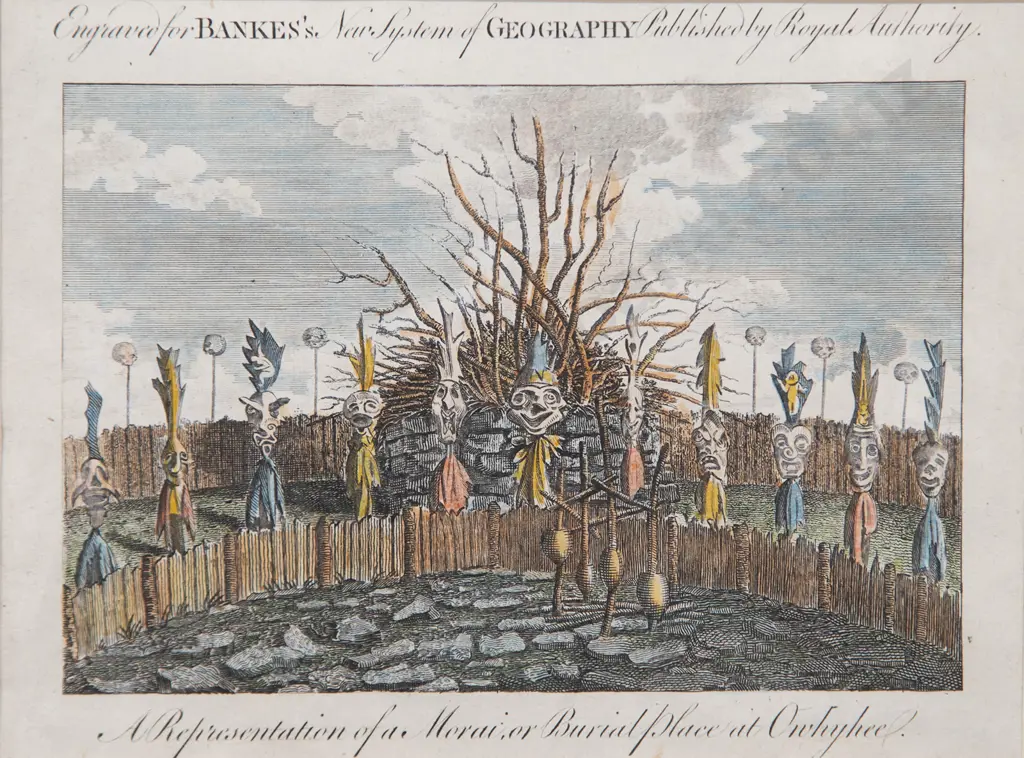 Engraved for BANKES's New System of GEOGRAPHY Published by Royal Authority.
A Representation of a Morai, or Burial place at Owhyhee.